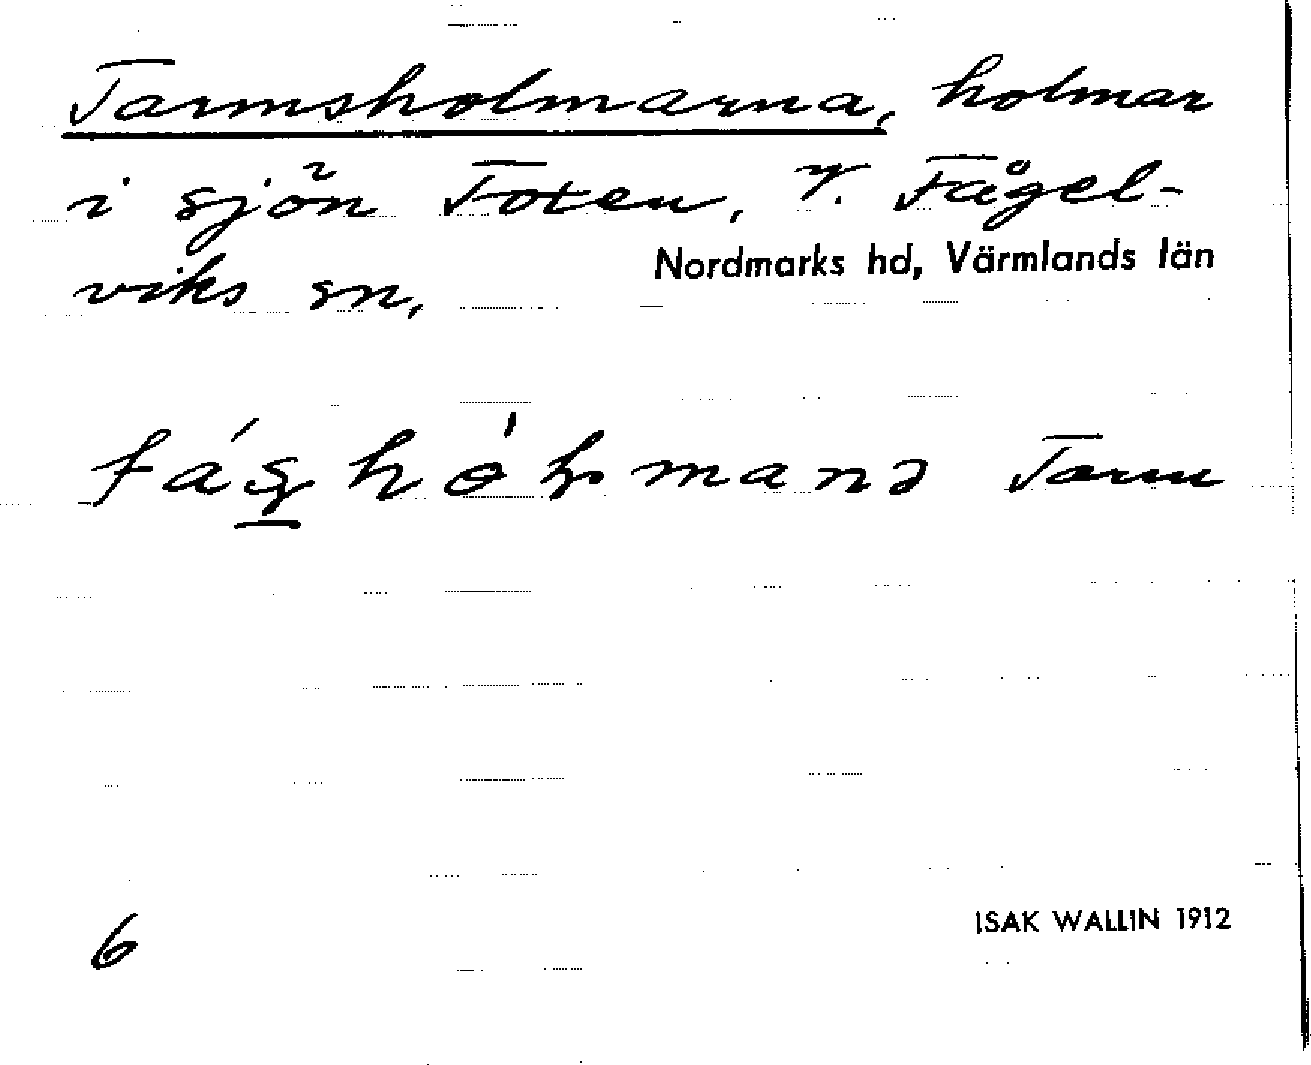 Tarmsholmarna, holmar
i sjön Foxen, V. Fågel-
Nordmarks hd, Värmlands län
viks sn.
Tarm
6
ISAK WALLIN 1912